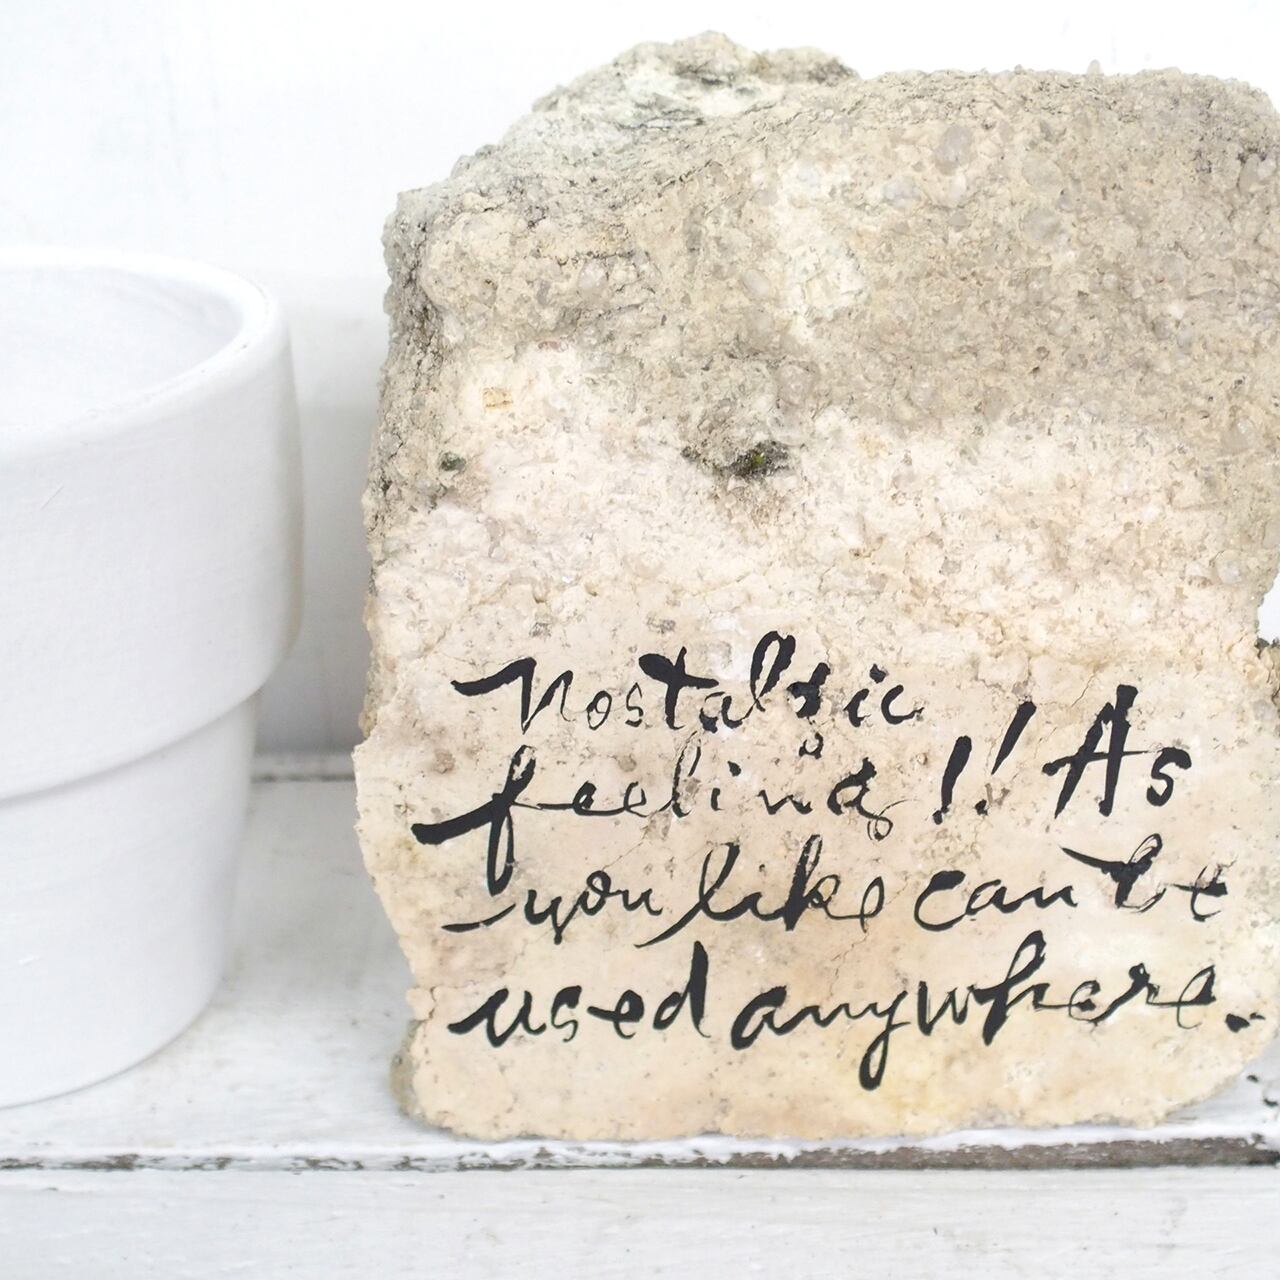 Nostalgic
feeling!! As
you like can be
used anywhere.